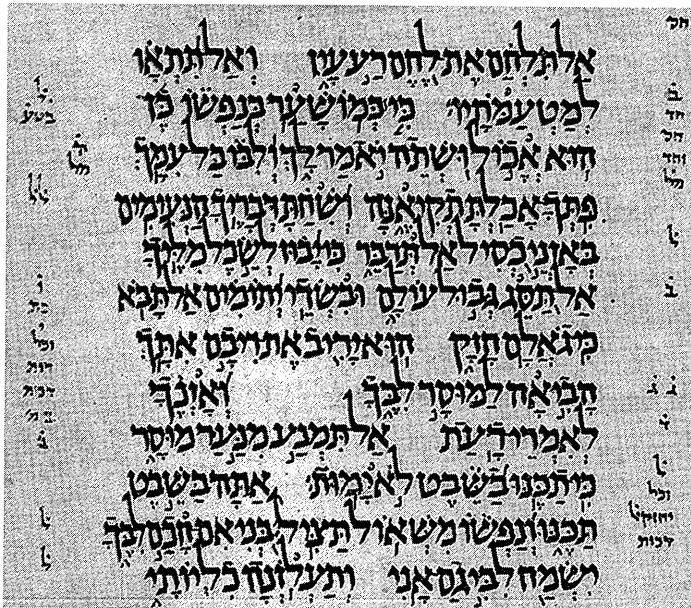 אַל תִּלְחַם אֶת לֶחֶם רַע עָיִן וְאַל תִּתְאָו
לְמַטְעַמֹּתָיו כִּי כְּמוֹ שָׁעַר בְּנַפְשׁוֹ כֶּן
הוּא אֱכוֹל וּשְׁתֵה יֹאמַר לָךְ וְלִבּוֹ בַּל עִמָּךְ
פִּתְּךָ אָכַלְתָּ תְקִיאֶנָּה וְשִׁחַתָּ דְּבָרֶיךָ הַנְּעִימִים
בְּאָזְנֵי כְסִיל אַל תְּדַבֵּר כִּי יָבוּז לְשֵׂכֶל מִלֶּיךָ
אַל תַּסֵּג גְּבוּל עוֹלָם וּבִשְׂדֵי יְתוֹמִים אַל תָּבֹא
כִּי גֹאֲלָם חָזָק הוּא יָרִיב אֶת רִיבָם אִתָּךְ
הָבִיאָה לַמּוּסָר לִבֶּךָ וְאָזְנֶךָ
לְאִמְרֵי דָעַת אַל תִּמְנַע מִנַּעַר מוּסָר
כִּי תַכֶּנּוּ בַשֵּׁבֶט לֹא יָמוּת אַתָּה בַּשֵּׁבֶט
תַּכֶּנּוּ וְנַפְשׁוֹ מִשְּׁאוֹל תַּצִּיל בְּנִי אִם חָכַם לִבֶּךָ
יִשְׂמַח לִבִּי גַם אָנִי וְתַעְלֹזְנָה כִלְיוֹתָי